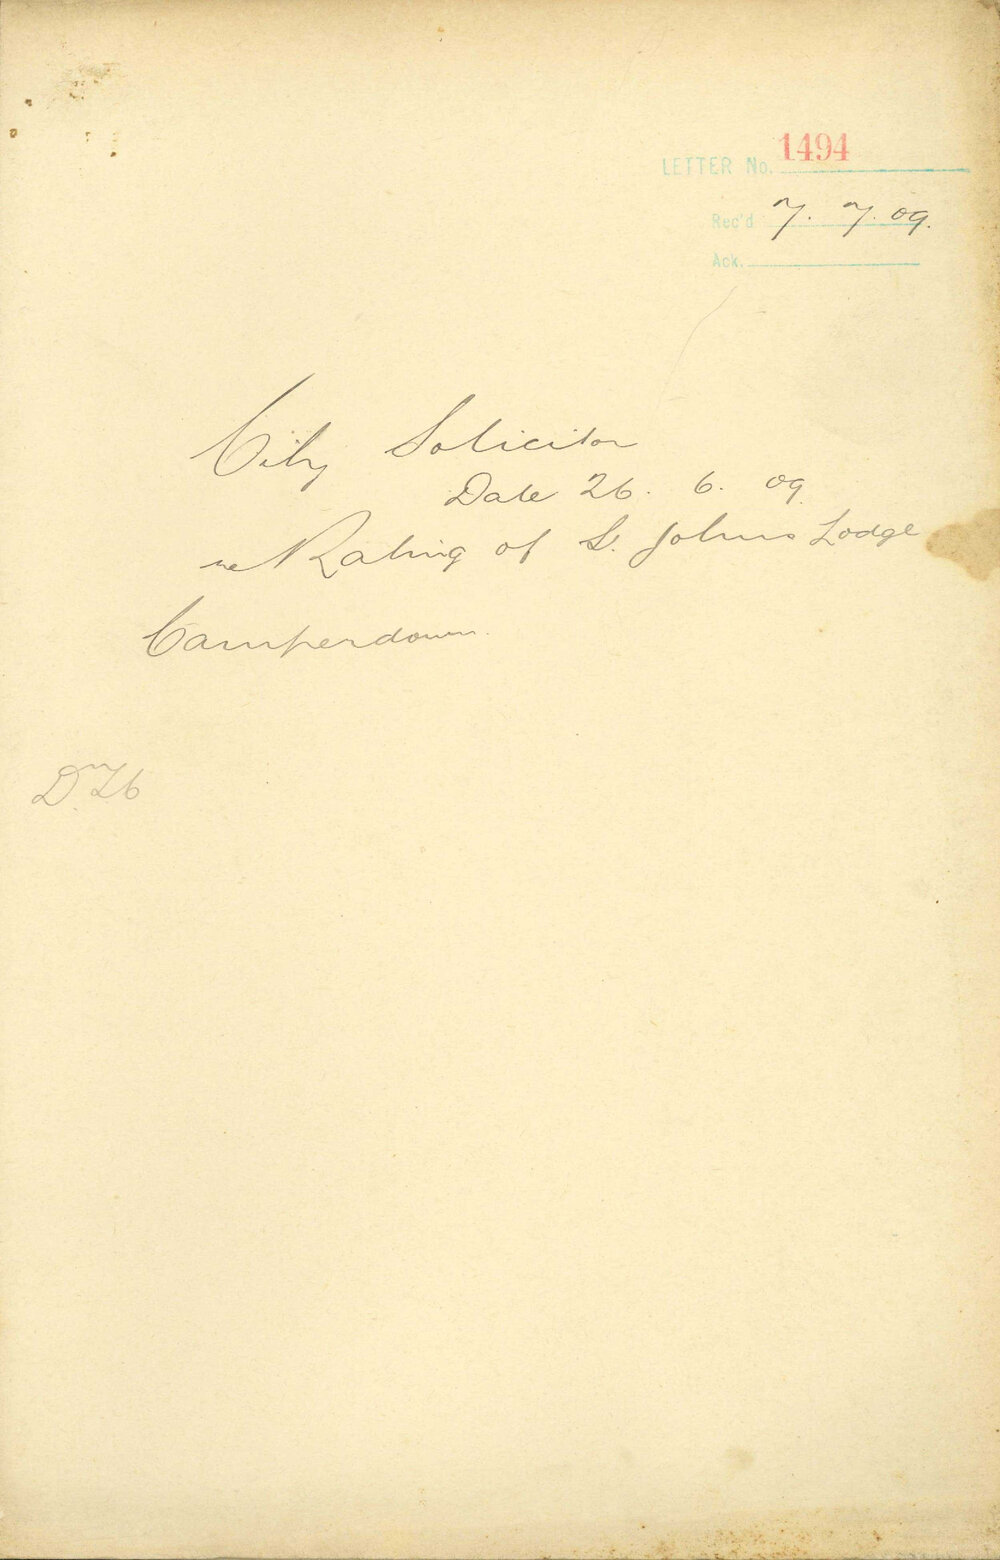 LETTER No. 1494
Rec'd 7. 7. 09.
Ack.
City Solicitor
Date 26. 6. 09.
re Rating of St. Johns Lodge
Camperdown.